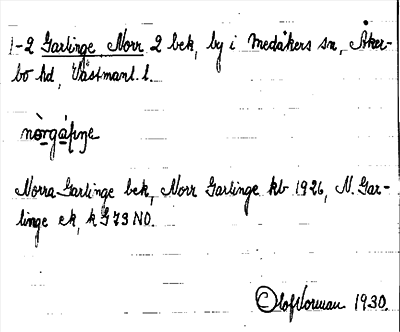 1-2 Garlinge Norr 2 bek, by i Medåkers sn, Åker-
bo hd, Västmanl. l.
Norra Garlinge bek, Norr Garlinge kb 1926, N. Gar-
linge ek, k G 73 NO.
Olof Norman 1930.